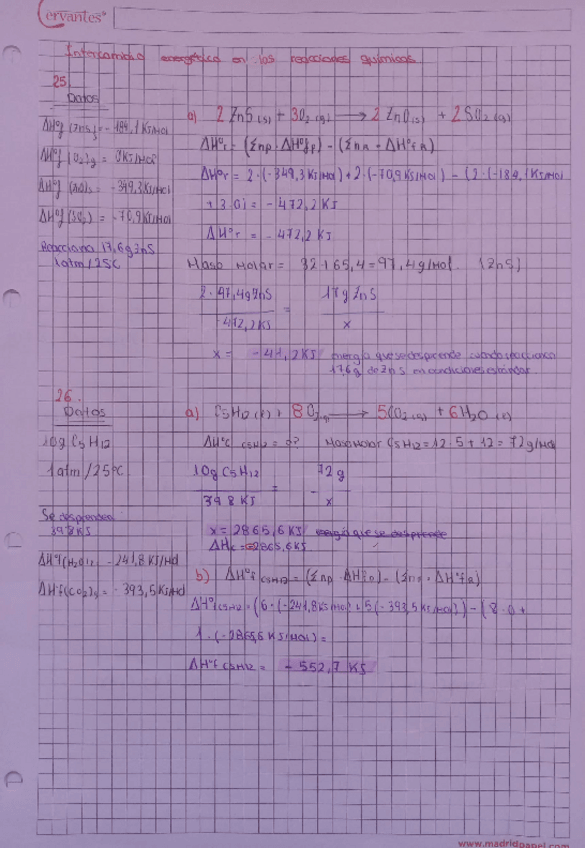 Cervantes
Intercambio energético en las reacciones químicas
25
Datos
ΔHºf (ZnS) = - 184,1 KJ/mol
ΔHºf (O2)g = 0KJ/mol
ΔHºf (ZnO)s = -349,3KJ/mol
ΔHºf (SO2) = -70,9KJ/mol
Reacciona 17,6g ZnS
1atm/25C
a) 2 ZnS (s) + 3O2 (g) → 2 ZnO(s) + 2SO2 (g)
ΔHºr = (Σnp · ΔHºfp) - (Σnn · ΔHºf R)
ΔHºr = 2·(-349,3 KJ/mol) + 2·(-70,9KJ/mol) - (2·(-184,1KJ/mol
+ 3·0) = - 472,2 KJ
ΔHºr = - 472,2 KJ
Masa Molar = 32+65,4 = 97,4g/mol. (ZnS)
2·97,4gZnS = 17g ZnS
-472,2 KJ x
x = -41,2KJ energía que se desprende cuando reacciona
17,6g de ZnS en condiciones estándar
26.
Datos
10g C5H12
1atm/25ºC
Se desprenden
398KJ
ΔHºf(H2O)2 -241,8KJ/mol
ΔHºf(CO2)g = -393,5KJ/mol
a) C5H12 (l) + 8O2(g) → 5CO2 (g) + 6H2O (l)
ΔHºC C5H12 = ? Masa Molar C5H12 = 12·5+12 = 72g/mol
10g C5H12 = 72g
398 KJ - x
x = 2865,6 KJ energía que se desprende
ΔHc = -2865,6KJ
b) ΔHºf C5H12 = (Σnp · ΔHfp) - (Σnn · ΔHºf R)
ΔHºf C5H12 = (6·(-241,8KJ/mol) + 5(-393,5KJ/mol)) - (8·0+
1·(-2865,6 KJ/mol) =
ΔHºf C5H12 = - 552,7 KJ
www.madridpapel.com